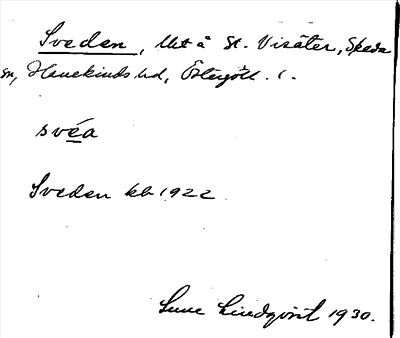 Sveden, lht å St. Visäter, Skeda
sn, Hanekinds hd, Östergötl. l.
svéa
Sveden kb 1922
Sune Lindqvist 1930.